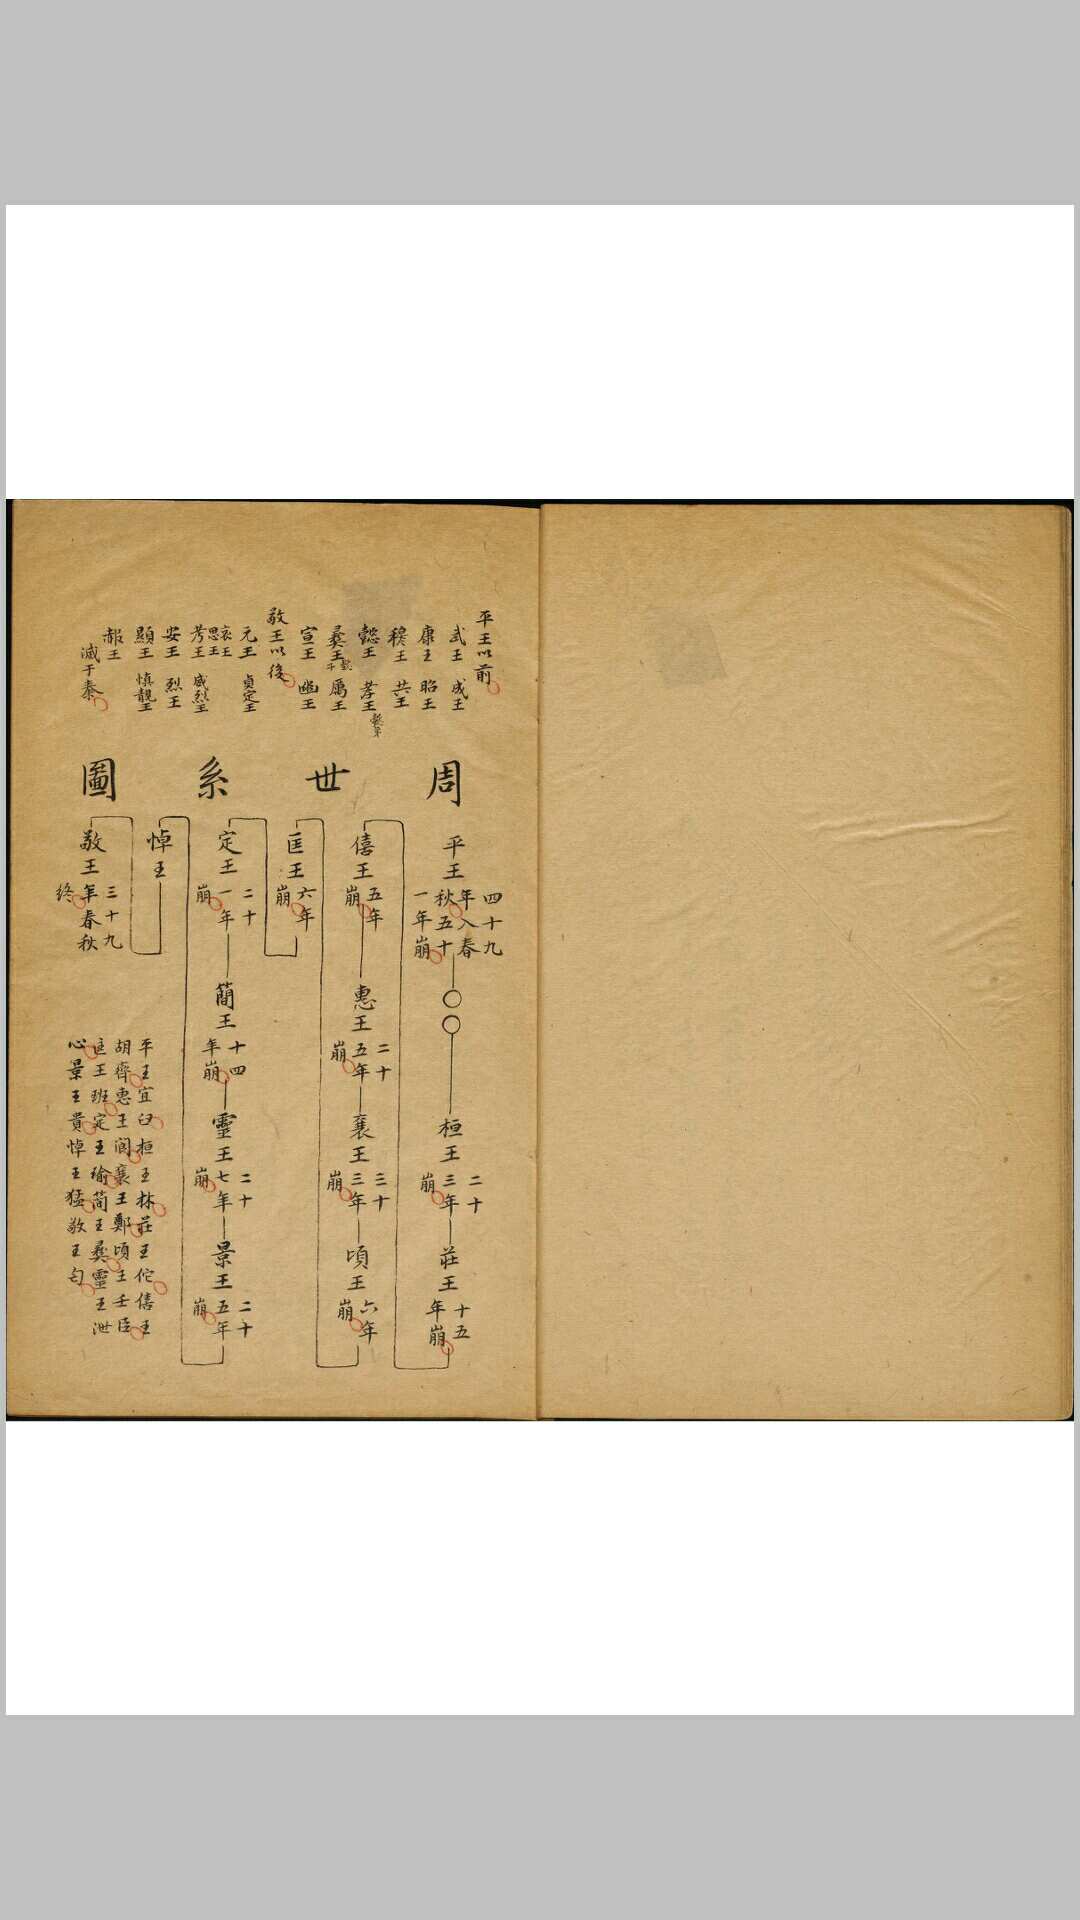 平王以前
武王 成王
康王 昭王
穆王 共王
懿王 孝王 懿弟
彝王 懿子 厲王
宣王 幽王
敬王以後
元王 貞定王
哀王
思王
考王 威烈王
安王 烈王
顯王 慎靚王
赧王
滅于秦
周世系圖
平王 四十九年入春秋五十一年崩
○○
桓王 二十三年崩
莊王 十五年崩
僖王 五年崩
惠王 二十五年崩
襄王 三十三年崩
頃王 六年崩
匡王 六年崩
定王 二十一年崩
簡王 十四年崩
靈王 二十七年崩
景王 二十五年崩
悼王
敬王 三十九年春秋終
平王宜臼桓王林莊王佗僖王
胡齊惠王閬襄王鄭頃王壬臣
匡王班定王瑜簡王彝靈王泄
心景王貴悼王猛敬王匄